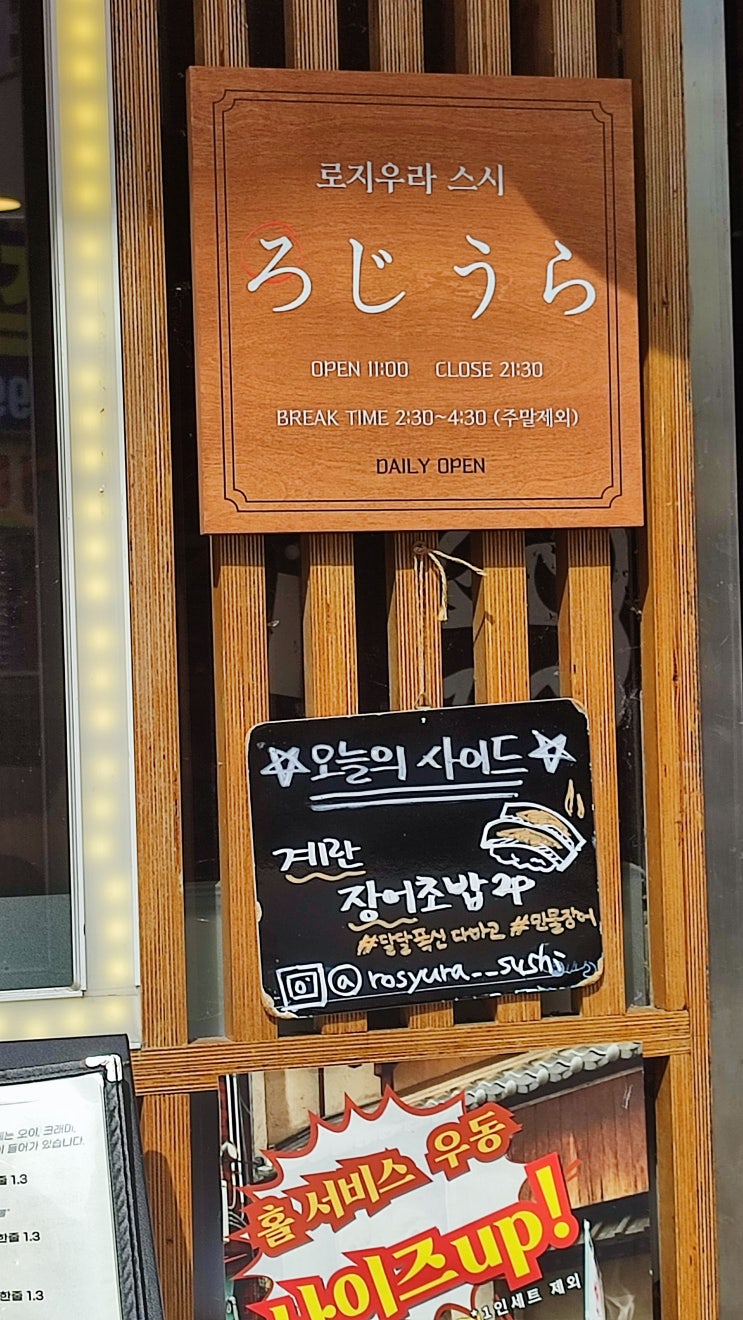 로지우라 스시
ろじうら
OPEN 11:00 CLOSE 21:30
BREAK TIME 2:30~4:30 (주말제외)
DAILY OPEN
오늘의 사이드
계란
장어초밥 2p
#달달폭신 타마고 #민물장어
@rosyura__sushi
는 오이, 크래미,
이 들어가 있습니다.
줄 1.3
한줄 1.3
한줄 1.3
홀 서비스 우동
사이즈up!
1인세트 제외